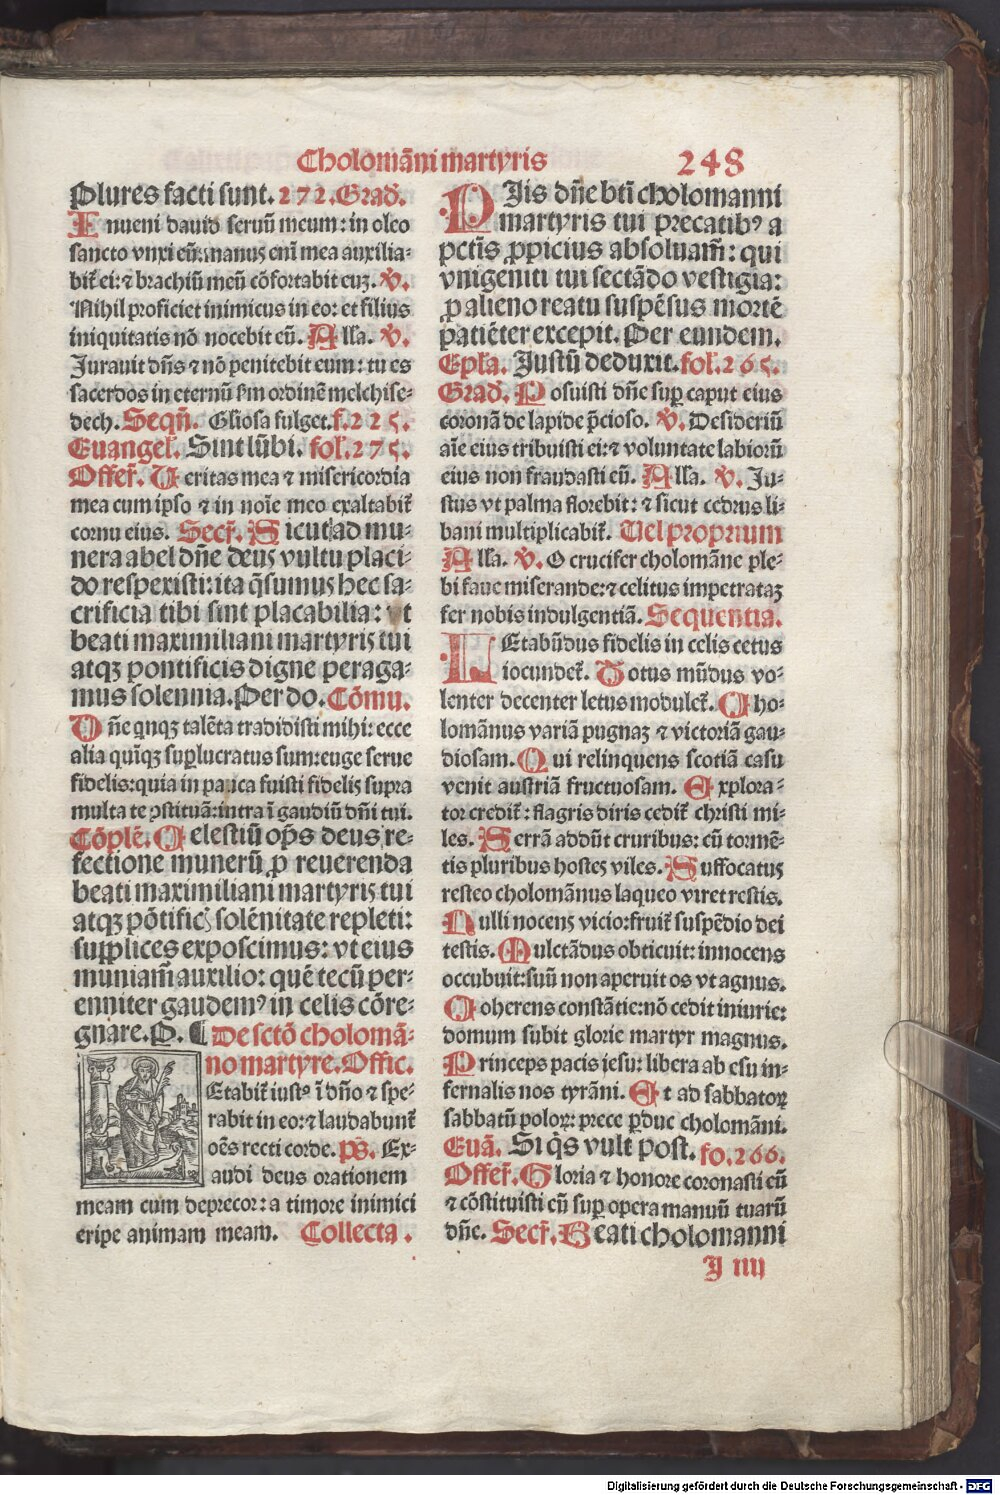 Cholomãni martyris 248
Plures facti sunt. 272. Grad̃.
Inueni dauid seruũ meum: in oleo
sancto vnxi eũ: manus em̃ mea auxilia-
bit̃ ei: ⁊ brachiũ meũ cõfortabit euꝫ. ℣.
Nihil proficiet inimicus in eo: et filius
iniquitatis nõ nocebit eũ. Alla. ℣.
Jurauit dñs ⁊ nõ penitebit eum: tu es
sacerdos in eternũ s̃m ordinẽ melchise-
dech. Seqñ. Gliosa fulget. f. 225.
Euangel̃. Sint lũbi. fol̃. 275.
Offer̃. Veritas mea ⁊ misericordia
mea cum ipso ⁊ in noĩe meo exaltabit̃
cornu eius. Secr̃. Sicut ad mu-
nera abel dñe deus vultu placi-
do respexisti: ita q̃sumus hec sa-
crificia tibi sint placabilia: vt
beati maximiliani martyris tui
atqꝫ pontificis digne peraga-
mus solennia. Per do. Cõmu.
Dñe qnqꝫ talẽta tradidisti mihi: ecce
alia quĩqꝫ suꝑlucratus sum: euge serue
fidelis: quia in pauca fuisti fidelis supra
multa te ꝯstituã: intra ĩ gaudiũ dñi tui.
Cõplẽ. Celestiũ op̃s deus re-
fectione munerũ ꝓ reuerenda
beati maximiliani martyris tui
atqꝫ põtific̃ solẽnitate repleti:
supplices exposcimus: vt eius
muniam̃ auxilio: quẽ tecũ per-
enniter gaudemꝰ in celis cõre-
gnare. P. ¶ De sctõ cholomã-
no martyre. Offic.
Letabit̃ iustꝰ ĩ dño ⁊ spe-
rabit in eo: ⁊ laudabunt̃
oẽs recti corde. ps̃. Ex-
audi deus orationem
meam cum deprecor: a timore inimici
eripe animam meam. Collecta.
PIis dñe btĩ cholomanni
martyris tui precatibꝰ a
pctĩs ꝓpicius absoluam̃: qui
vnigeniti tui sectãdo vestigia:
ꝓ alieno reatu suspẽsus mortẽ
patiẽter excepit. Per eundem.
Epl̃a. Justũ deduxit. fol̃. 265.
Grad̃. Posuisti dñe suꝑ caput eius
coronã de lapide p̃cioso. ℣. Desideriũ
aĩe eius tribuisti ei: ⁊ voluntate labiorũ
eius non fraudasti eũ. Alla. ℣. Ju-
stus vt palma florebit: ⁊ sicut cedrus li-
bani multiplicabit̃. Uel proprium
Alla. ℣. O crucifer cholomãne ple-
bi faue miserande: ⁊ celitus impetrataꝫ
fer nobis indulgentiã. Sequentia.
LEtabũdus fidelis in celis cetus
iocundet̃. Totus mũdus vo-
lenter decenter letus modulet̃. Cho-
lomãnus variã pugnaꝫ ⁊ victoriã gau-
diosam. Qui relinquens scotiã casu
venit austriã fructuosam. Explora-
tor credit̃: flagris diris cedit̃ christi mi-
les. Serrã addũt cruribus: cũ tormẽ-
tis pluribus hostes viles. Suffocatus
resteo cholomãnus laqueo viret restis.
Nulli nocens vicio: fruit̃ suspẽdio dei
testis. Mulctãdus obticuit: innocens
occubuit: suũ non aperuit os vt agnus.
Coherens constãtie: nõ cedit iniurie:
domum subit glorie martyr magnus.
Princeps pacis iesu: libera ab esu in-
fernalis nos tyrãni. Et ad sabbatoꝝ
sabbatũ poloꝝ: prece ꝑduc cholomãni.
Euã. Si q̃s vult post. fo. 266.
Offer̃. Gloria ⁊ honore coronasti eũ
⁊ cõstituisti eũ suꝑ opera manuũ tuarũ
dñe. Secr̃. Beati cholomanni
J iiii
Digitalisierung gefördert durch die Deutsche Forschungsgemeinschaft - DFG